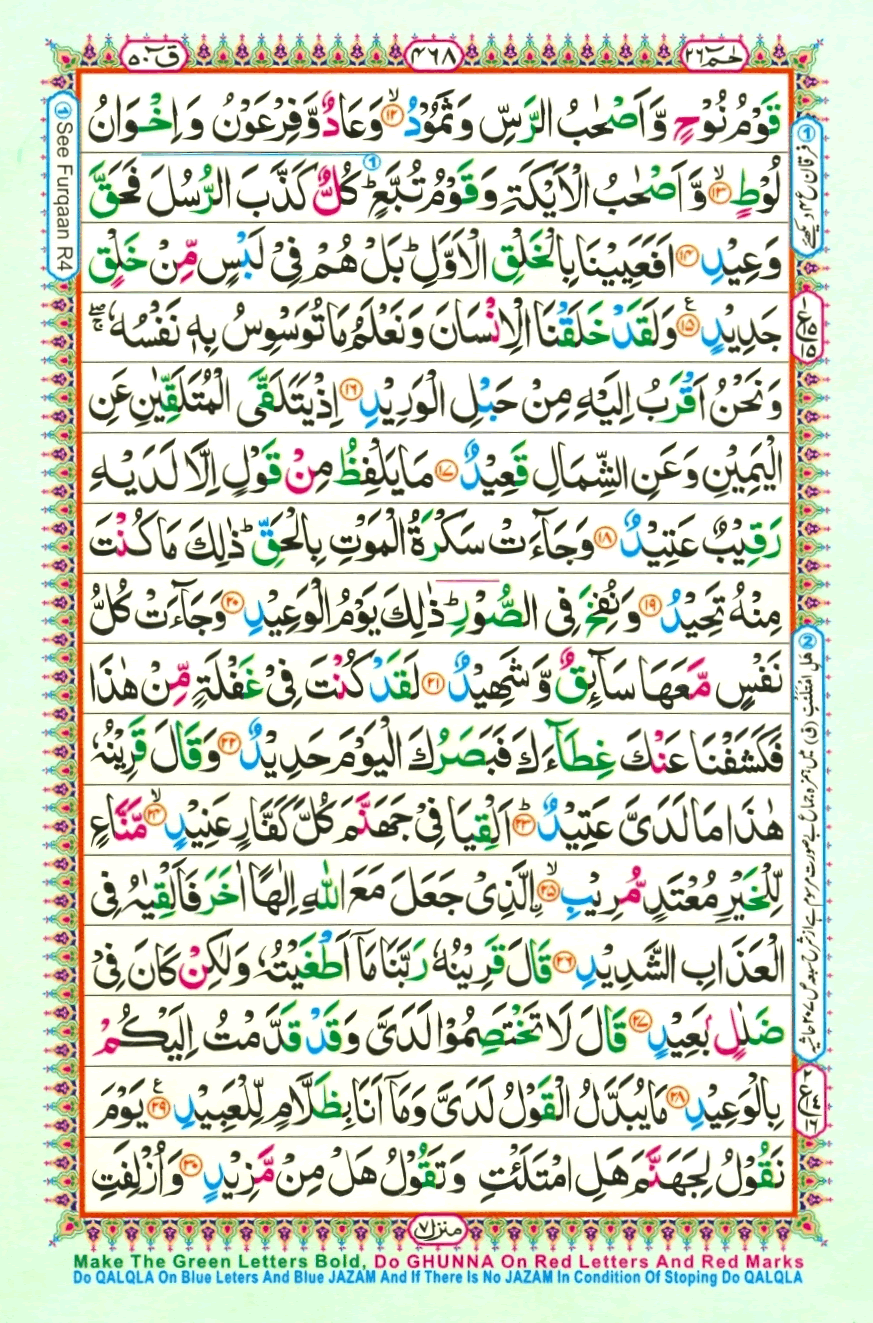 حٰمٓ ٢٦
٤٦٨
قٓ ٥٠
قَوْمُ نُوْحٍ وَّاَصْحٰبُ الرَّسِّ وَثَمُوْدُ ۙ‏﴿۱۲﴾ وَعَادٌ وَّفِرْعَوْنُ وَاِخْوَانُ
لُوْطٍ ۙ‏﴿۱۳﴾ وَّاَصْحٰبُ الْاَيْكَةِ وَقَوْمُ تُبَّعٍ ؕ ① كُلٌّ كَذَّبَ الرُّسُلَ فَحَقَّ
وَعِيْدِ ﴿۱۴﴾ اَفَعَيِيْنَا بِالْخَلْقِ الْاَوَّلِ ؕ بَلْ هُمْ فِىْ لَبْسٍ مِّنْ خَلْقٍ
جَدِيْدٍ ﴿۱۵﴾ ع وَلَقَدْ خَلَقْنَا الْاِنْسَانَ وَنَعْلَمُ مَا تُوَسْوِسُ بِهٖ نَفْسُهٗ ۖۚ
وَنَحْنُ اَقْرَبُ اِلَيْهِ مِنْ حَبْلِ الْوَرِيْدِ ﴿۱۶﴾ اِذْ يَتَلَقَّى الْمُتَلَقِّيٰنِ عَنِ
الْيَمِيْنِ وَعَنِ الشِّمَالِ قَعِيْدٌ ﴿۱۷﴾ مَا يَلْفِظُ مِنْ قَوْلٍ اِلَّا لَدَيْهِ
رَقِيْبٌ عَتِيْدٌ ﴿۱۸﴾ وَجَآءَتْ سَكْرَةُ الْمَوْتِ بِالْحَقِّ ؕ ذٰلِكَ مَا كُنْتَ
مِنْهُ تَحِيْدُ ﴿۱۹﴾ وَنُفِخَ فِى الصُّوْرِ ؕ ذٰلِكَ يَوْمُ الْوَعِيْدِ ﴿۲۰﴾ وَجَآءَتْ كُلُّ
نَفْسٍ مَّعَهَا سَآئِقٌ وَّشَهِيْدٌ ﴿۲۱﴾ لَقَدْ كُنْتَ فِىْ غَفْلَةٍ مِّنْ هٰذَا
فَكَشَفْنَا عَنْكَ غِطَآءَكَ فَبَصَرُكَ الْيَوْمَ حَدِيْدٌ ﴿۲۲﴾ وَقَالَ قَرِيْنُهٗ
هٰذَا مَا لَدَىَّ عَتِيْدٌ ؕ‏﴿۲۳﴾ اَلْقِيَا فِىْ جَهَنَّمَ كُلَّ كَفَّارٍ عَنِيْدٍ ۙ‏﴿۲۴﴾ مَّنَّاعٍ
لِّلْخَيْرِ مُعْتَدٍ مُّرِيْبِ ۙ‏﴿۲۵﴾ ۨالَّذِىْ جَعَلَ مَعَ اللّٰهِ اِلٰهًا اٰخَرَ فَاَلْقِيٰهُ فِى
الْعَذَابِ الشَّدِيْدِ ﴿۲۶﴾ قَالَ قَرِيْنُهٗ رَبَّنَا مَاۤ اَطْغَيْتُهٗ وَلٰكِنْ كَانَ فِىْ
ضَلٰلٍۢ بَعِيْدٍ ﴿۲۷﴾ قَالَ لَا تَخْتَصِمُوْا لَدَىَّ وَقَدْ قَدَّمْتُ اِلَيْكُمْ
بِالْوَعِيْدِ ﴿۲۸﴾ مَا يُبَدَّلُ الْقَوْلُ لَدَىَّ وَمَاۤ اَنَا بِظَلَّامٍ لِّلْعَبِيْدِ ﴿۲۹﴾ ع يَوْمَ
نَقُوْلُ لِجَهَنَّمَ هَلِ امْتَلَئْتِ وَتَقُوْلُ هَلْ مِنْ مَّزِيْدٍ ﴿۳۰﴾ وَاُزْلِفَتِ
① See Furqaan R4
① فرقان ع ۴ دیکھئے
١ ع ١٥ ١٥
٢ ع ١٤ ١٦
منزل ٧
Make The Green Letters Bold, Do GHUNNA On Red Letters And Red Marks
Do QALQLA On Blue Leters And Blue JAZAM And If There Is No JAZAM In Condition Of Stoping Do QALQLA